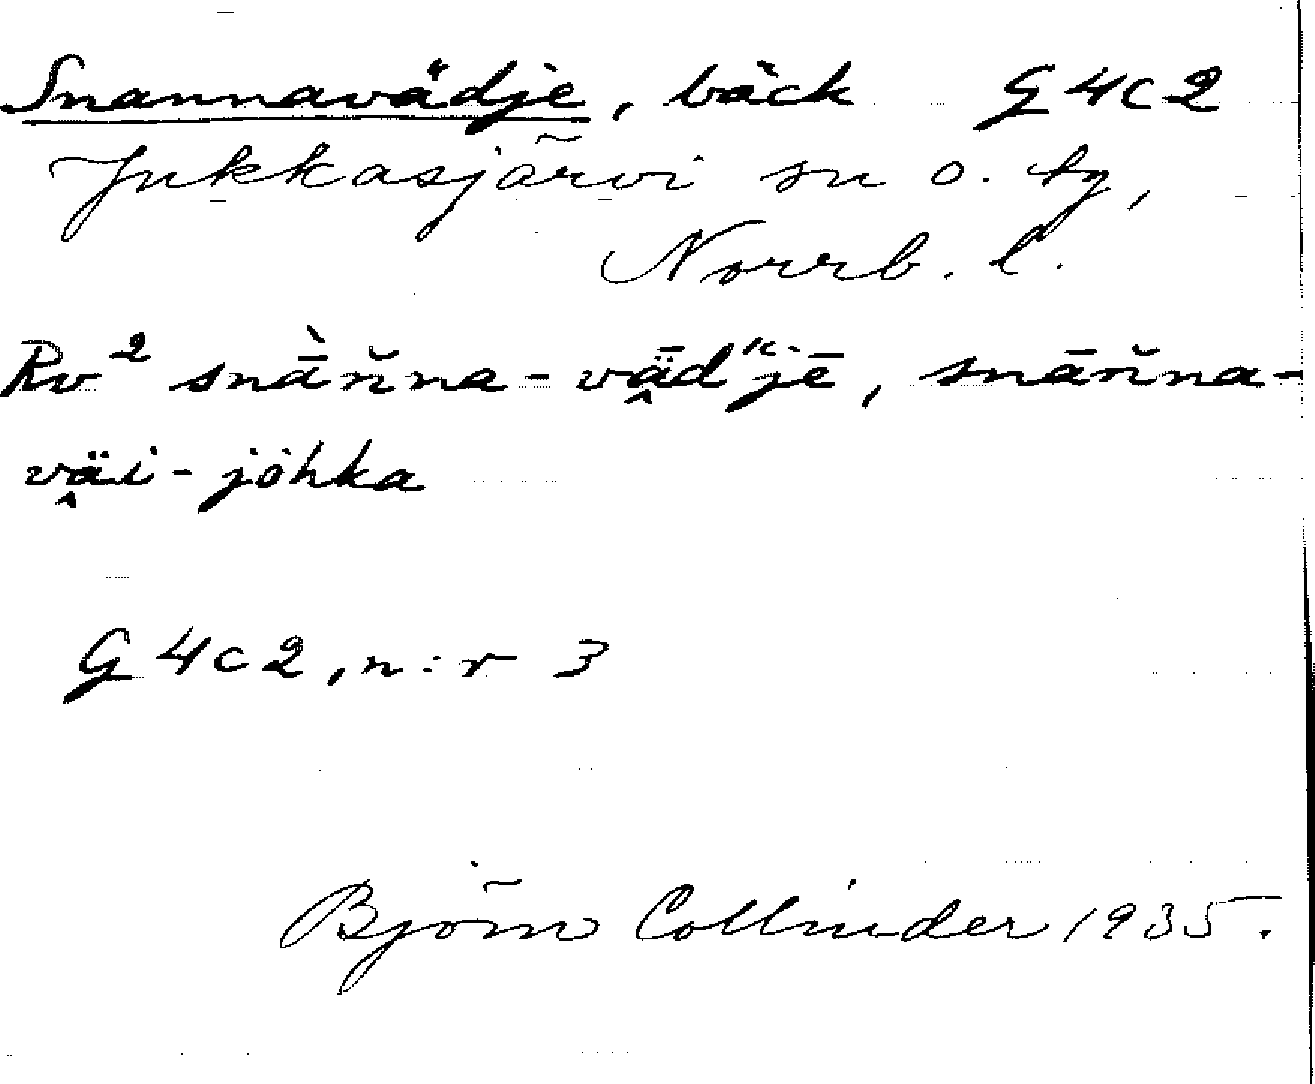 Snannavädje, bäck G4c2
Jukkasjärvi sn o. tg,
Norrb. l.
Rv² snā̀ňna-vǟ̭d"jē, snāňna-
vä̭i-jȯhka
G4c2, n:r 3
Björn Collinder 1935.